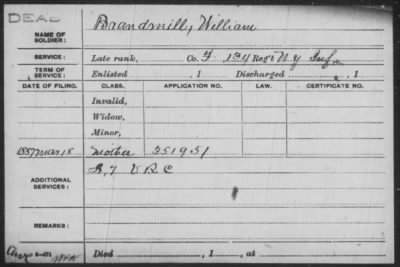 DEAL
NAME OF SOLDIER: Brandmill, William
SERVICE: Late rank, Co. F, 134 Reg't N.Y. Inf.
TERM OF SERVICE: Enlisted , 1 Discharged , 1
DATE OF FILING. CLASS. APPLICATION NO. LAW. CERTIFICATE NO.
Invalid,
Widow,
Minor,
1887 Mar 18 Mother 351951
ADDITIONAL SERVICES: A, 7 V R C
REMARKS:
Died , 1 , at